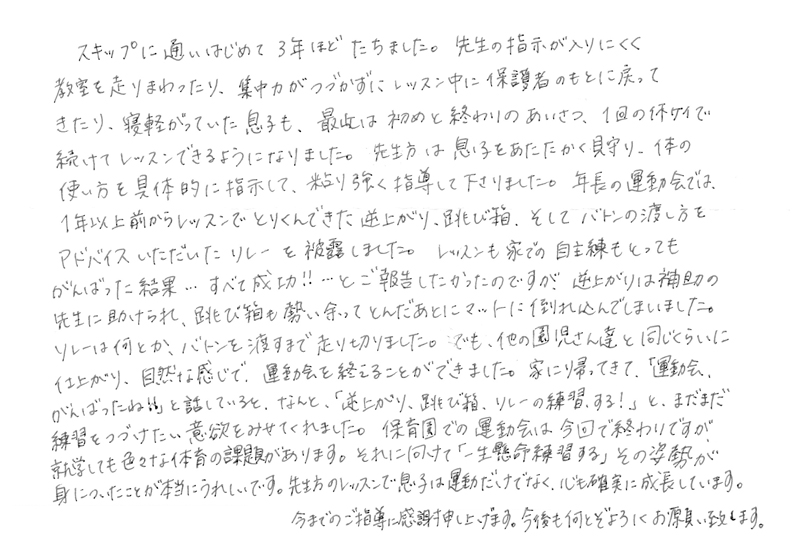 スキップに通いはじめて3年ほどたちました。先生の指示が入りにくく
教室を走りまわったり、集中力がつづかずにレッスン中に保護者のもとに戻って
きたり、寝転がっていた息子も、最近は初めと終わりのあいさつ、1回の休ケイで
続けてレッスンできるようになりました。先生方は息子をあたたかく見守り、体の
使い方を具体的に指示して、粘り強く指導して下さりました。年長の運動会では、
1年以上前からレッスンでとりくんできた逆上がり、跳び箱、そしてバトンの渡し方を
アドバイスいただいたリレーを披露しました。レッスンも家での自主練もとっても
がんばった結果…すべて成功!!…とご報告したかったのですが、逆上がりは補助の
先生に助けられ、跳び箱も勢い余ってとんだあとにマットに倒れ込んでしまいました。
リレーは何とか、バトンを渡すまで走り切りました。でも、他の園児さん達と同じくらいに
仕上がり、自然な感じで、運動会を終えることができました。家に帰ってきて、「運動会、
がんばったね!!」と話していると、なんと、「逆上がり、跳び箱、リレーの練習、する!」と、まだまだ
練習をつづけたい意欲をみせてくれました。保育園での運動会は今回で終わりですが、
就学しても色々な体育の課題があります。それに向けて「一生懸命練習する」その姿勢が
身についたことが本当にうれしいです。先生方のレッスンで息子は運動だけでなく、心も確実に成長しています。
今までのご指導に感謝申し上げます。今後も何とぞよろしくお願い致します。